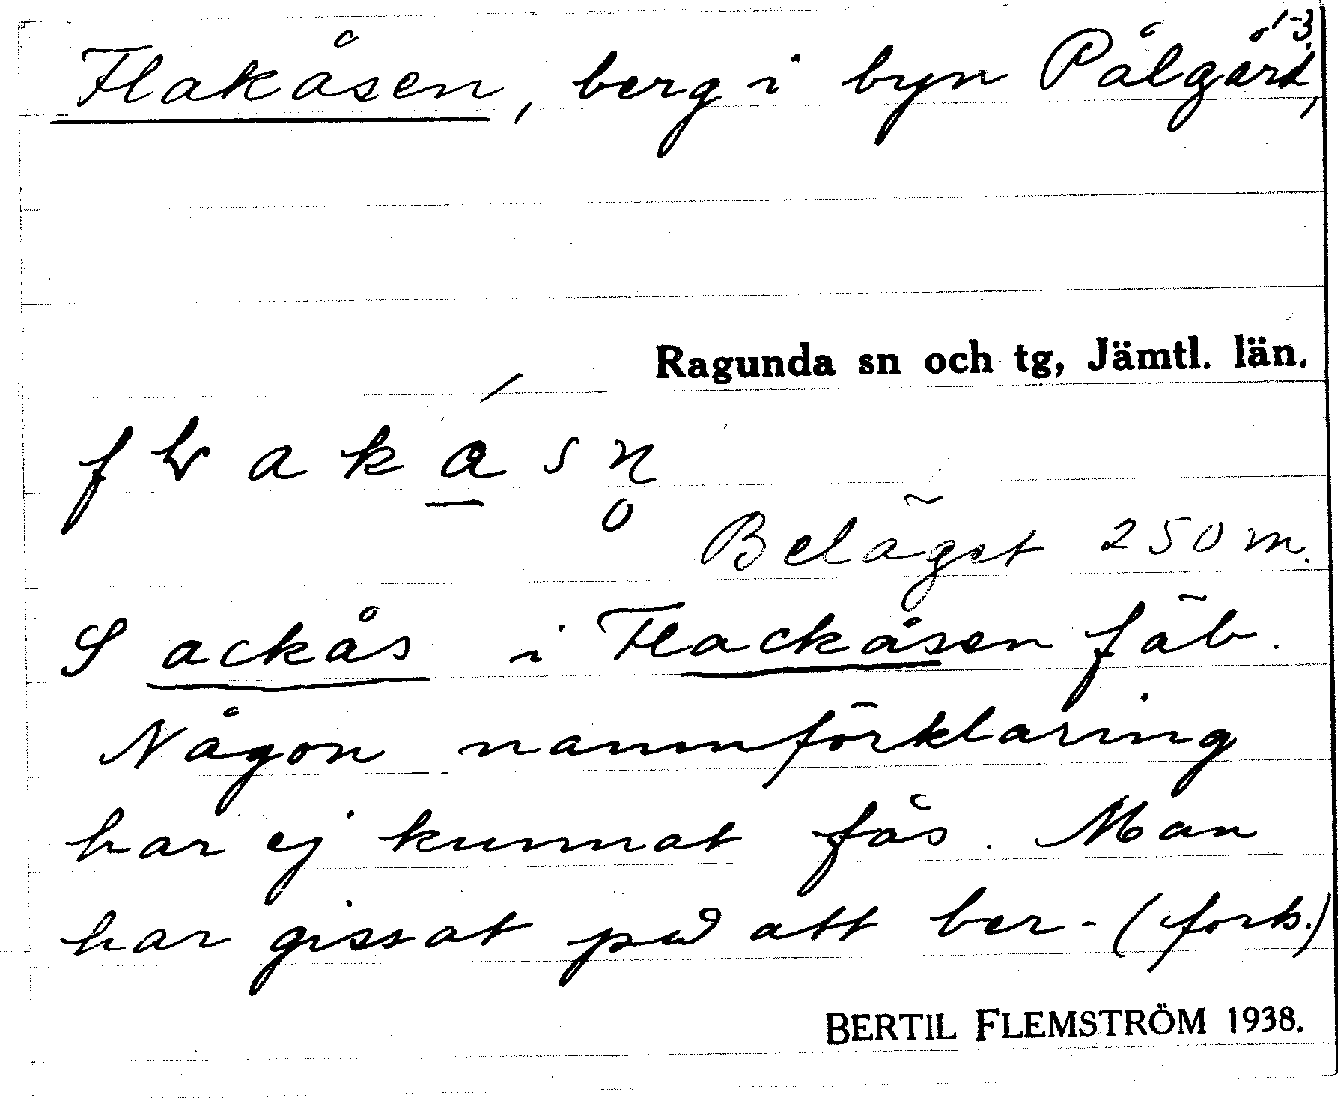 1-3.
Flakåsen, berg i byn Pålgård,
Ragunda sn och tg, Jämtl. län.
Beläget 250 m.
S ackås i Flackåsen fäb.
Någon namnförklaring
har ej kunnat fås. Man
har gissat på att ber- (forts.)
BERTIL FLEMSTRÖM 1938.